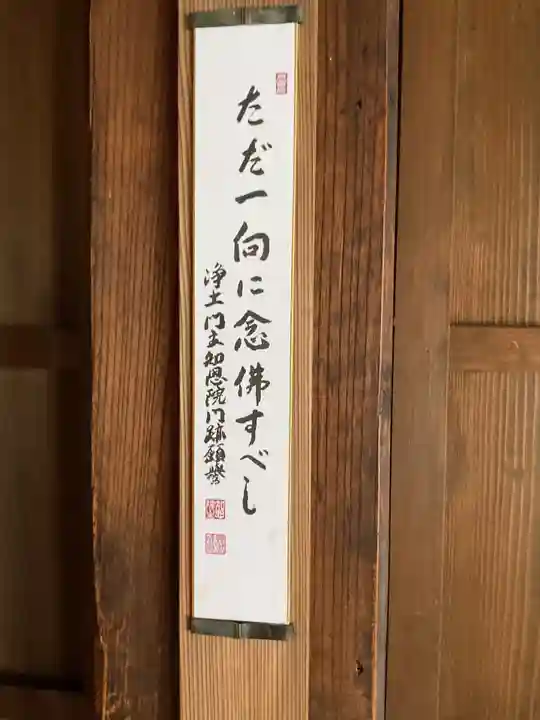 ただ一向に念佛すべし
浄土門主知恩院門跡願譽